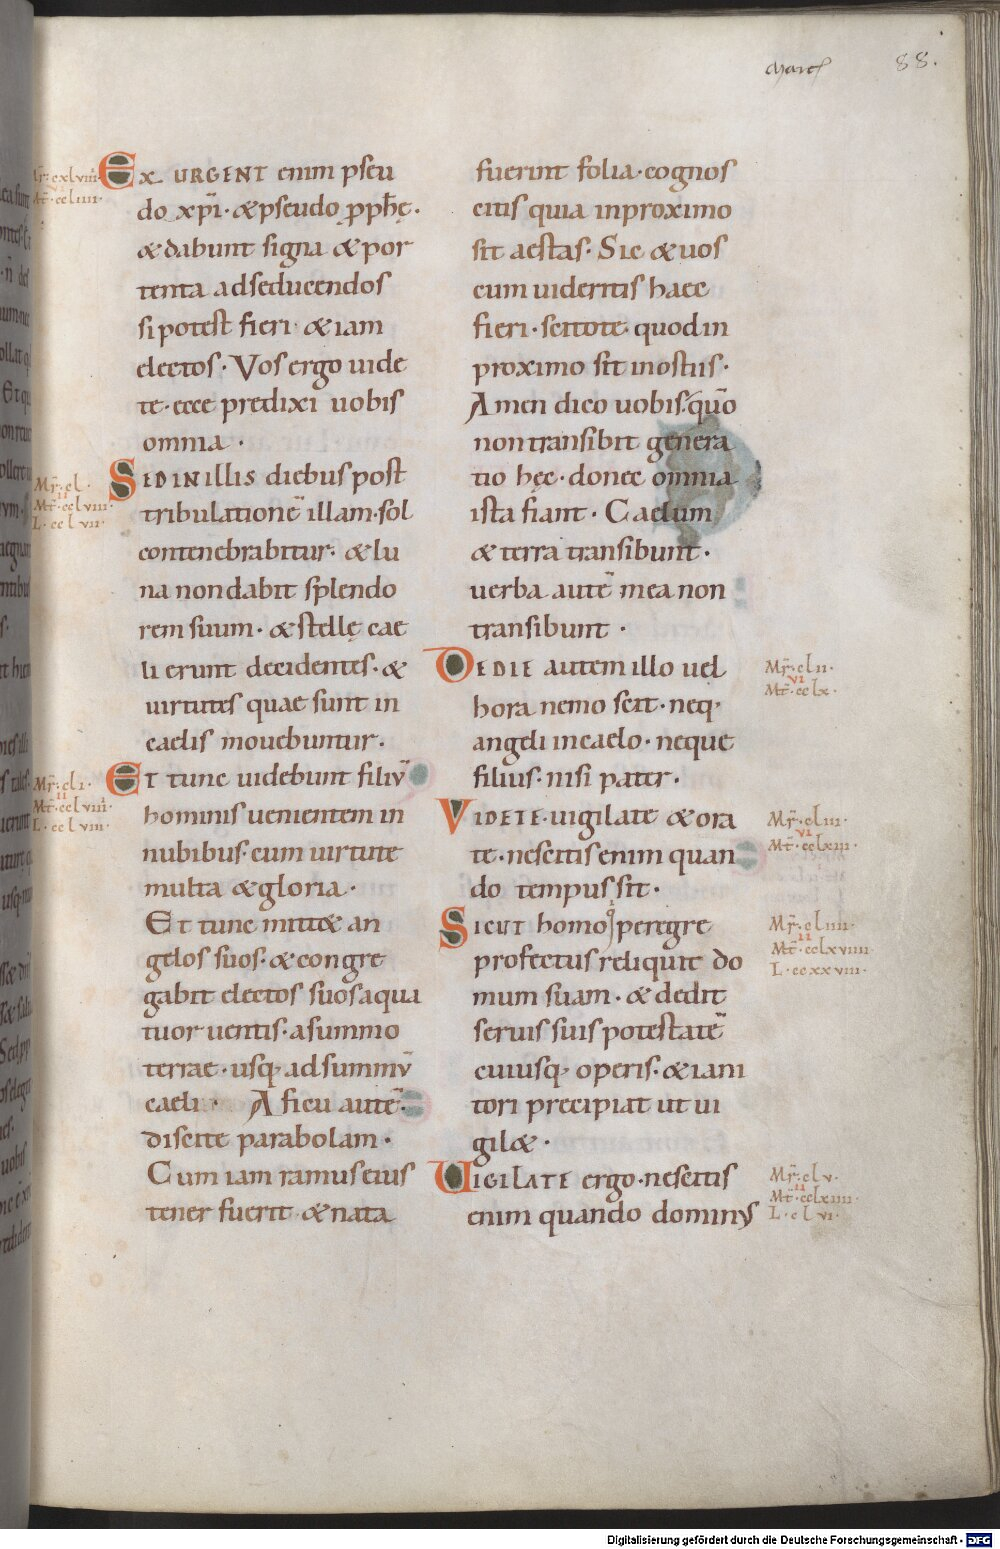 Marc
88.
Mr̄·cxlviiii·
vi
Mt̄·ccliiii·
Ex URGENT enim pseu
do xp̄i· &pseudo ꝓph̄ę·
&dabunt signa &por
tenta adseducendos
sipotest fieri &iam
electos· Vos ergo uide
te· ecce predixi uobis
omnia·
Mr̄·cl·
ii
Mt̄·cclviii·
L·cclvii·
SEDINILLIS diebus post
tribulationē illam·sol
contenebrabitur· &lu
na nondabit splendo
rem suum· &stellę cae
li erunt decidentes· &
uirtutes quae sunt in
caelis mouebuntur·
Mr̄·cli·
ii
Mt̄·cclviiii·
L·cclviii·
Et tunc uidebunt filiū
hominis uenientem in
nubibus·cum uirtute
multa &gloria·
Et tunc mitt& an
gelos suos· &congre
gabit electos suosaqua
tuor uentis·asummo
terrae·usq· adsummū
caeli· A ficu autē·
discite parabolam·
Cum iam ramus eius
tener fuerit &nata
fuerint folia·cognos
citis quia inproximo
sit aestas· Sic &uos
cum uideritis haec
fieri·scitote quodin
proximo sit inostiis·
Amen dico uobis·quō
nontransibit genera
tio hęc·donec omnia
ista fiant· Caelum
&terra transibunt·
uerba autē mea non
transibunt·
DEDIE autem illo uel
hora nemo scit·neq·
angeli incaelo·neque
filius·nisi pater·
Mr̄·clii·
vi
Mt̄·cclx·
VIDETE·uigilate &ora
te·nescitisenim quan
do tempussit·
Mr̄·cliii·
vi
Mt̄·cclxiii·
SICUT homo peregre
profectus reliquit do
mum suam· &dedit
seruis suis potestatē
cuiusq· operis·&iani
tori precipiat ut ui
gil&·
Mr̄·cliiii·
ii
Mt̄·cclxviiii·
L·ccxxviii·
UIGILATE ergo·nescitis
enim quando dominus
Mr̄·clv·
ii
Mt̄·cclxiiii·
L·clvi·
Digitalisierung gefördert durch die Deutsche Forschungsgemeinschaft - DFG